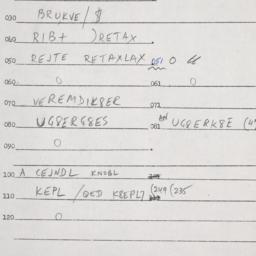 030 BRUKVE/$
040 RIB+ )RETAX
050 REJTE RETAXLAX 051 O
060 O 061 O
070 VEREMDIK8ER 071
080 UG8ERG8ES 081 AN UG8ERK8E (4
090 O
100 A CEJNDL KNOBL
110 KEPL /QED K8EPL7 (249 (235
120 O